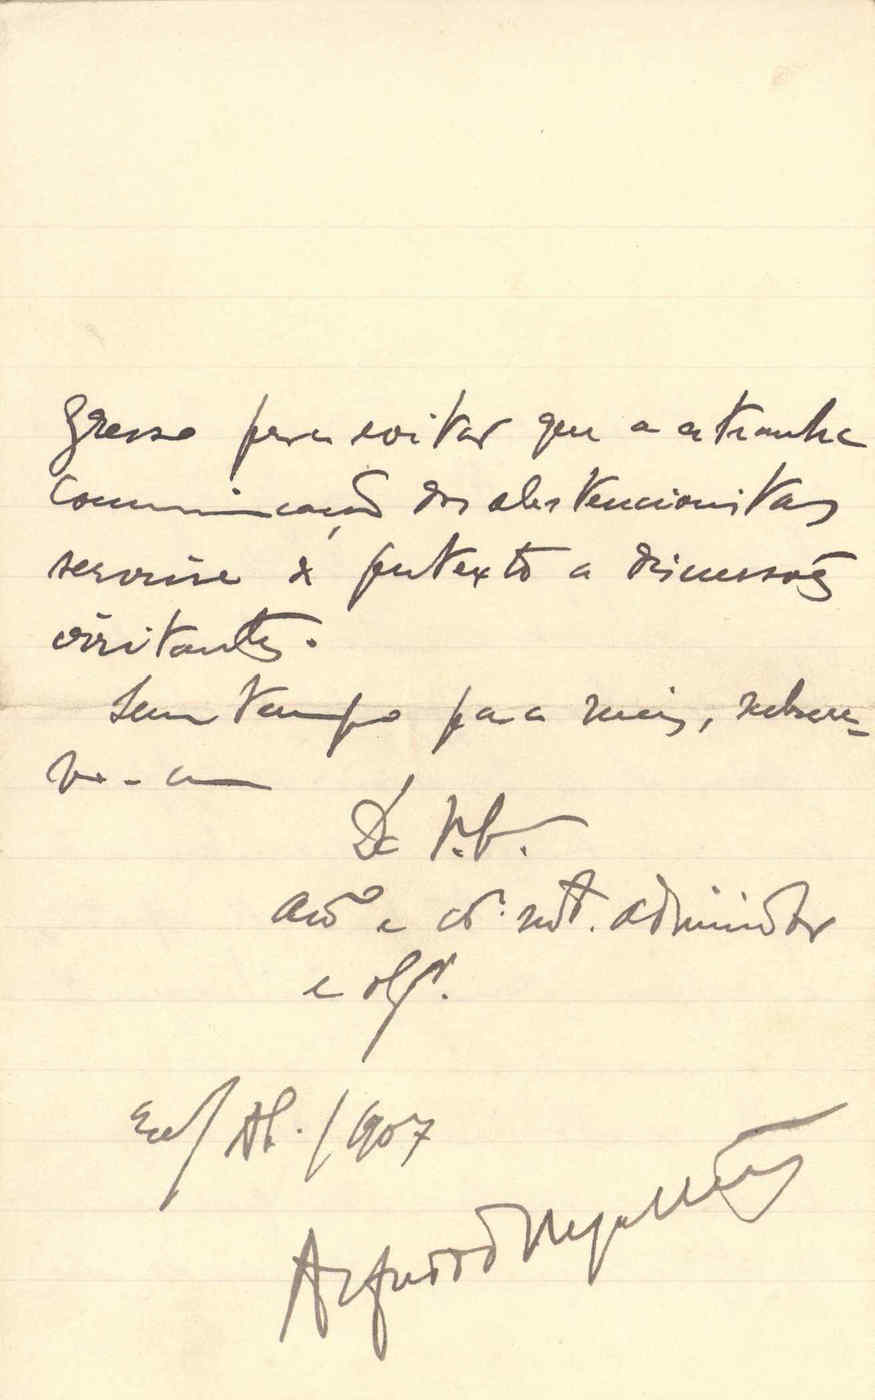 gresso para evitar que a extranha
communicação dos abstencionistas
servisse de pretexto a discussões
irritantes.
Sem tempo para mais, subscre-
vo-me
De V.
e admirador
e
1907
Alfredo de Magalhães